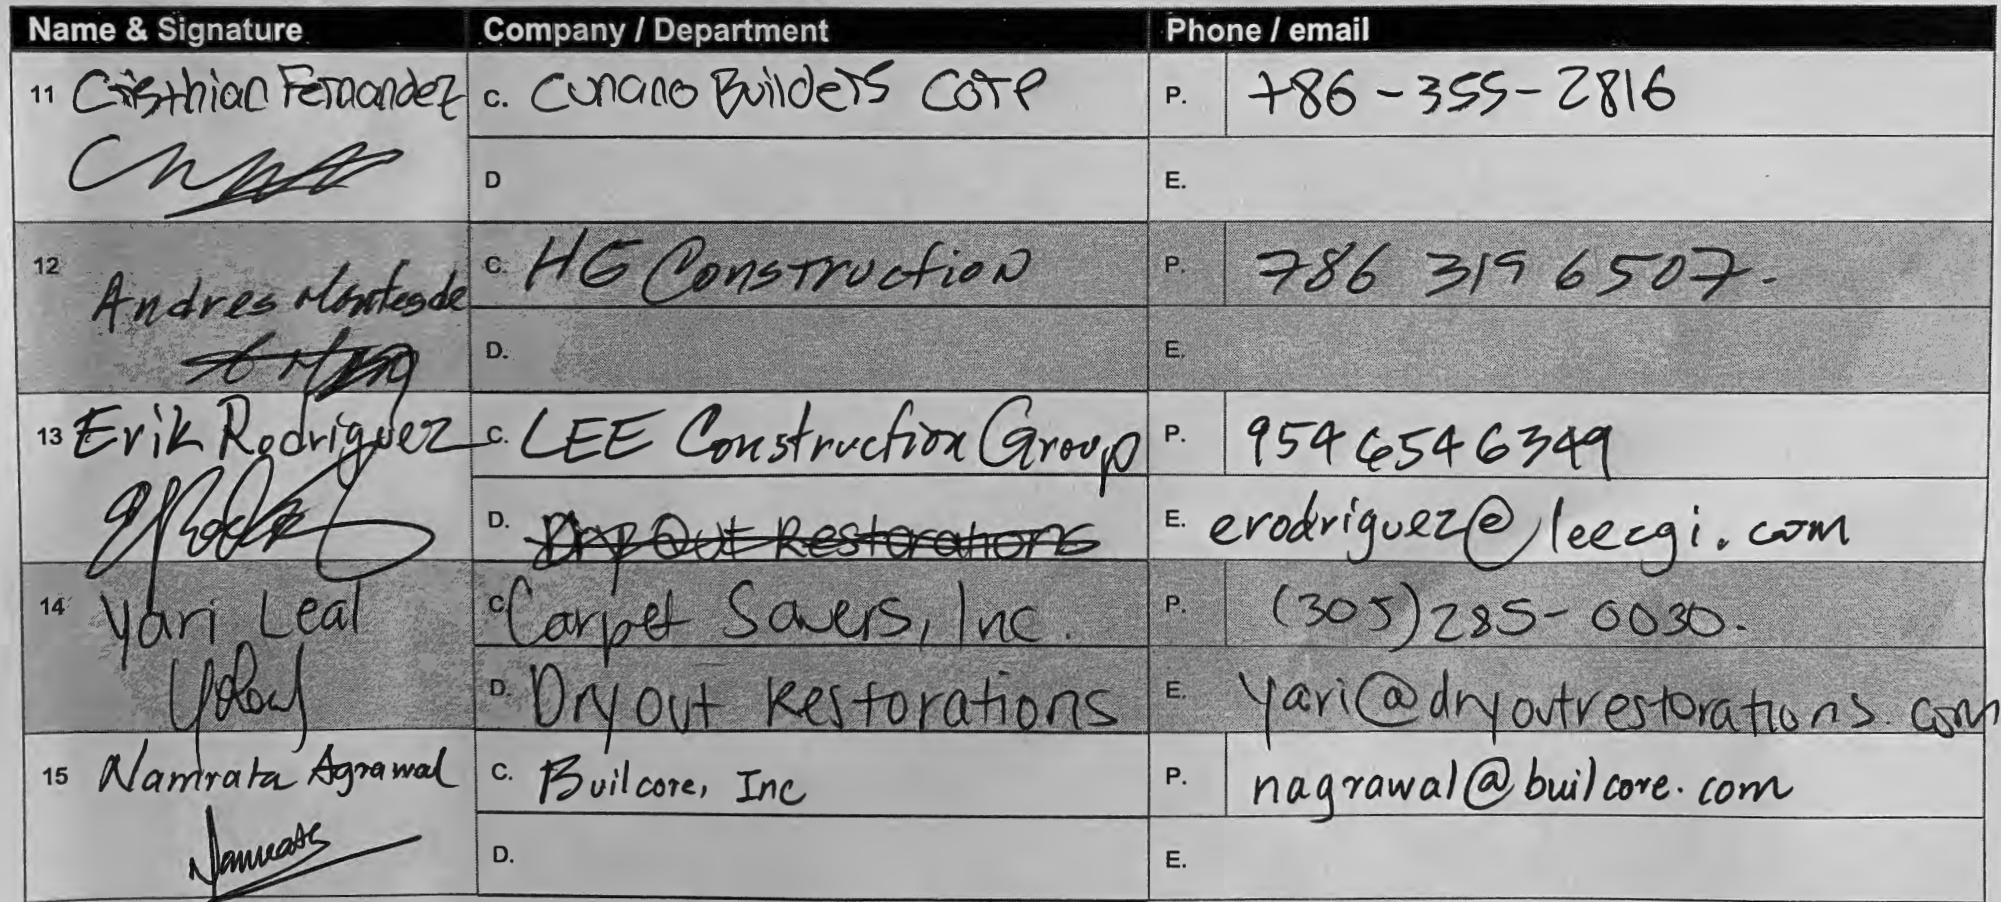 Name & Signature Company / Department Phone / email
11 Cristhian Fernandez C. Cunano Builders Corp P. 786-355-2816
D E.
12 Andres Montesde C. HG Construction P. 786 319 6507.
D. E.
13 Erik Rodriguez C. LEE Construction Group P. 954 654 6349
D. Dry Out Restorations E. erodriguez@leecgi.com
14 Yari Leal C. Carpet Savers, Inc. P. (305)285-0030.
D. Dry out Restorations E. Yari@dryoutrestorations.com
15 Namrata Agrawal C. Builcore, Inc P. nagrawal@builcore.com
D. E.